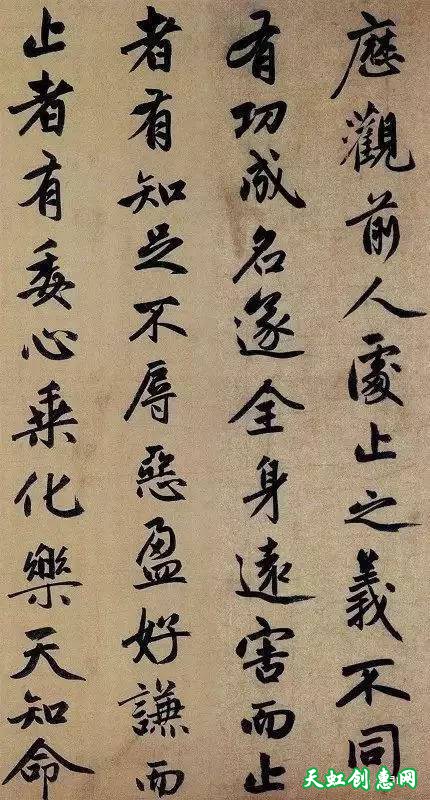 歷觀前人處止之義不同
有功成名遂全身遠害而止
者有知足不辱惡盈好謙而
止者有委心乘化樂天知命
天虹创惠网